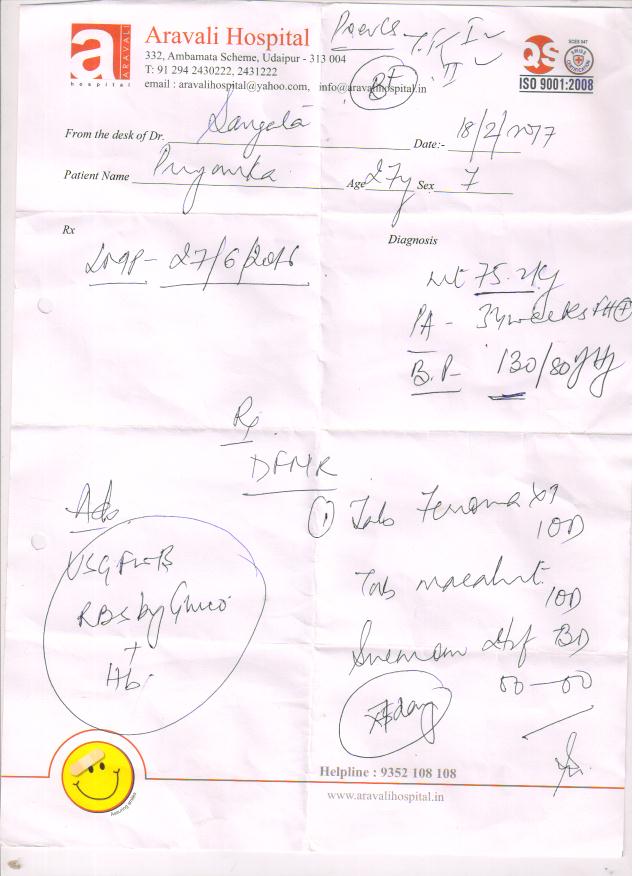 a
ARAVALI
hospital
Aravali Hospital
332, Ambamata Scheme, Udaipur - 313 004
T: 91 294 2430222, 2431222
email : aravalihospital@yahoo.com, info@aravalihospital.in
T.T I
II
B+
QS
SWISS CERTIFICATION
ISO 9001:2008
From the desk of Dr. Sangeta Date:- 18/2/2017
Patient Name Priyanka Age 27y Sex F
Rx
LMP- 27/6/2016
Diagnosis
wt 75.2Kg
PA - 34weeks FH+
B.P- 130/80
Rx
DFMR
Adv
USG FWB
RBS by Gluco
+
Hb.
① Tab XT
1OD
Tab
1OD
BD
Helpline : 9352 108 108
www.aravalihospital.in